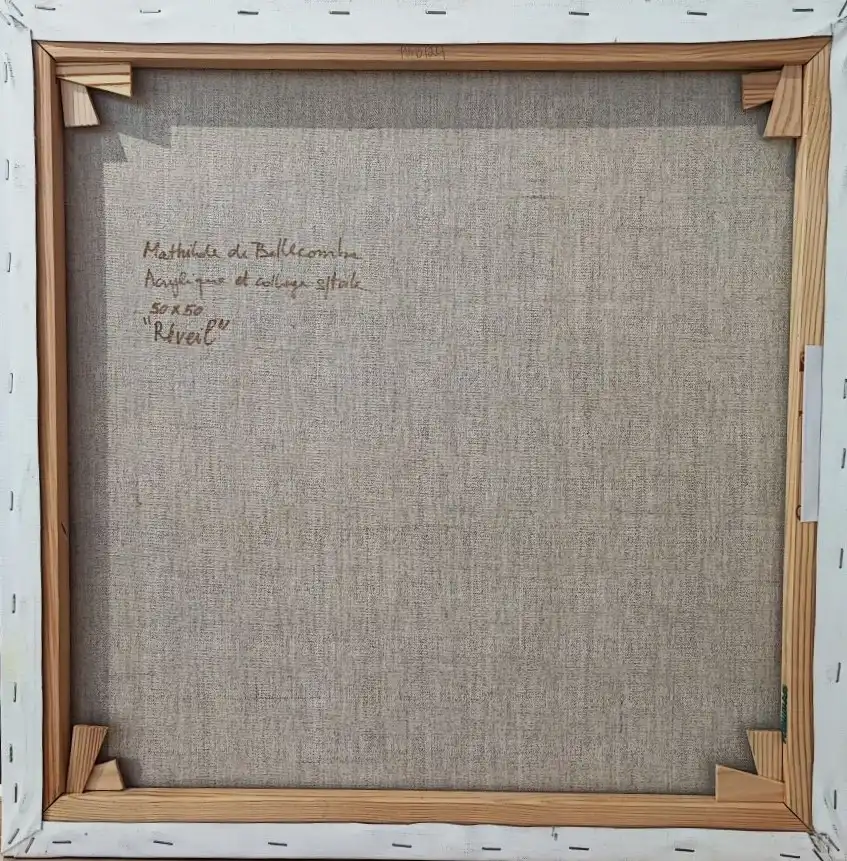 Mathilde de Bellecombe
Acrylique et collage s/toile
50 x 50
"Réveil"